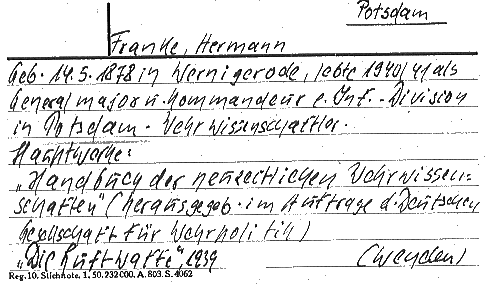 Potsdam
Franke, Hermann
Geb. 14.5.1878 in Wernigerode, lebte 1940/41 als
Generalmajor u. Kommandeur e. Inf.-Division
in Potsdam. Wehrwissenschaftler.
Hauptwerke:
„Handbuch der neuzeitlichen Wehrwissen-
schaften" (herausgegeb. im Auftrage d. Deutschen
Gesellschaft für Wehrpolitik)
„Die Luftwaffe", 1939
Reg. 10. Stichnote. 1. 50. 232000. A. 803. S. 4062